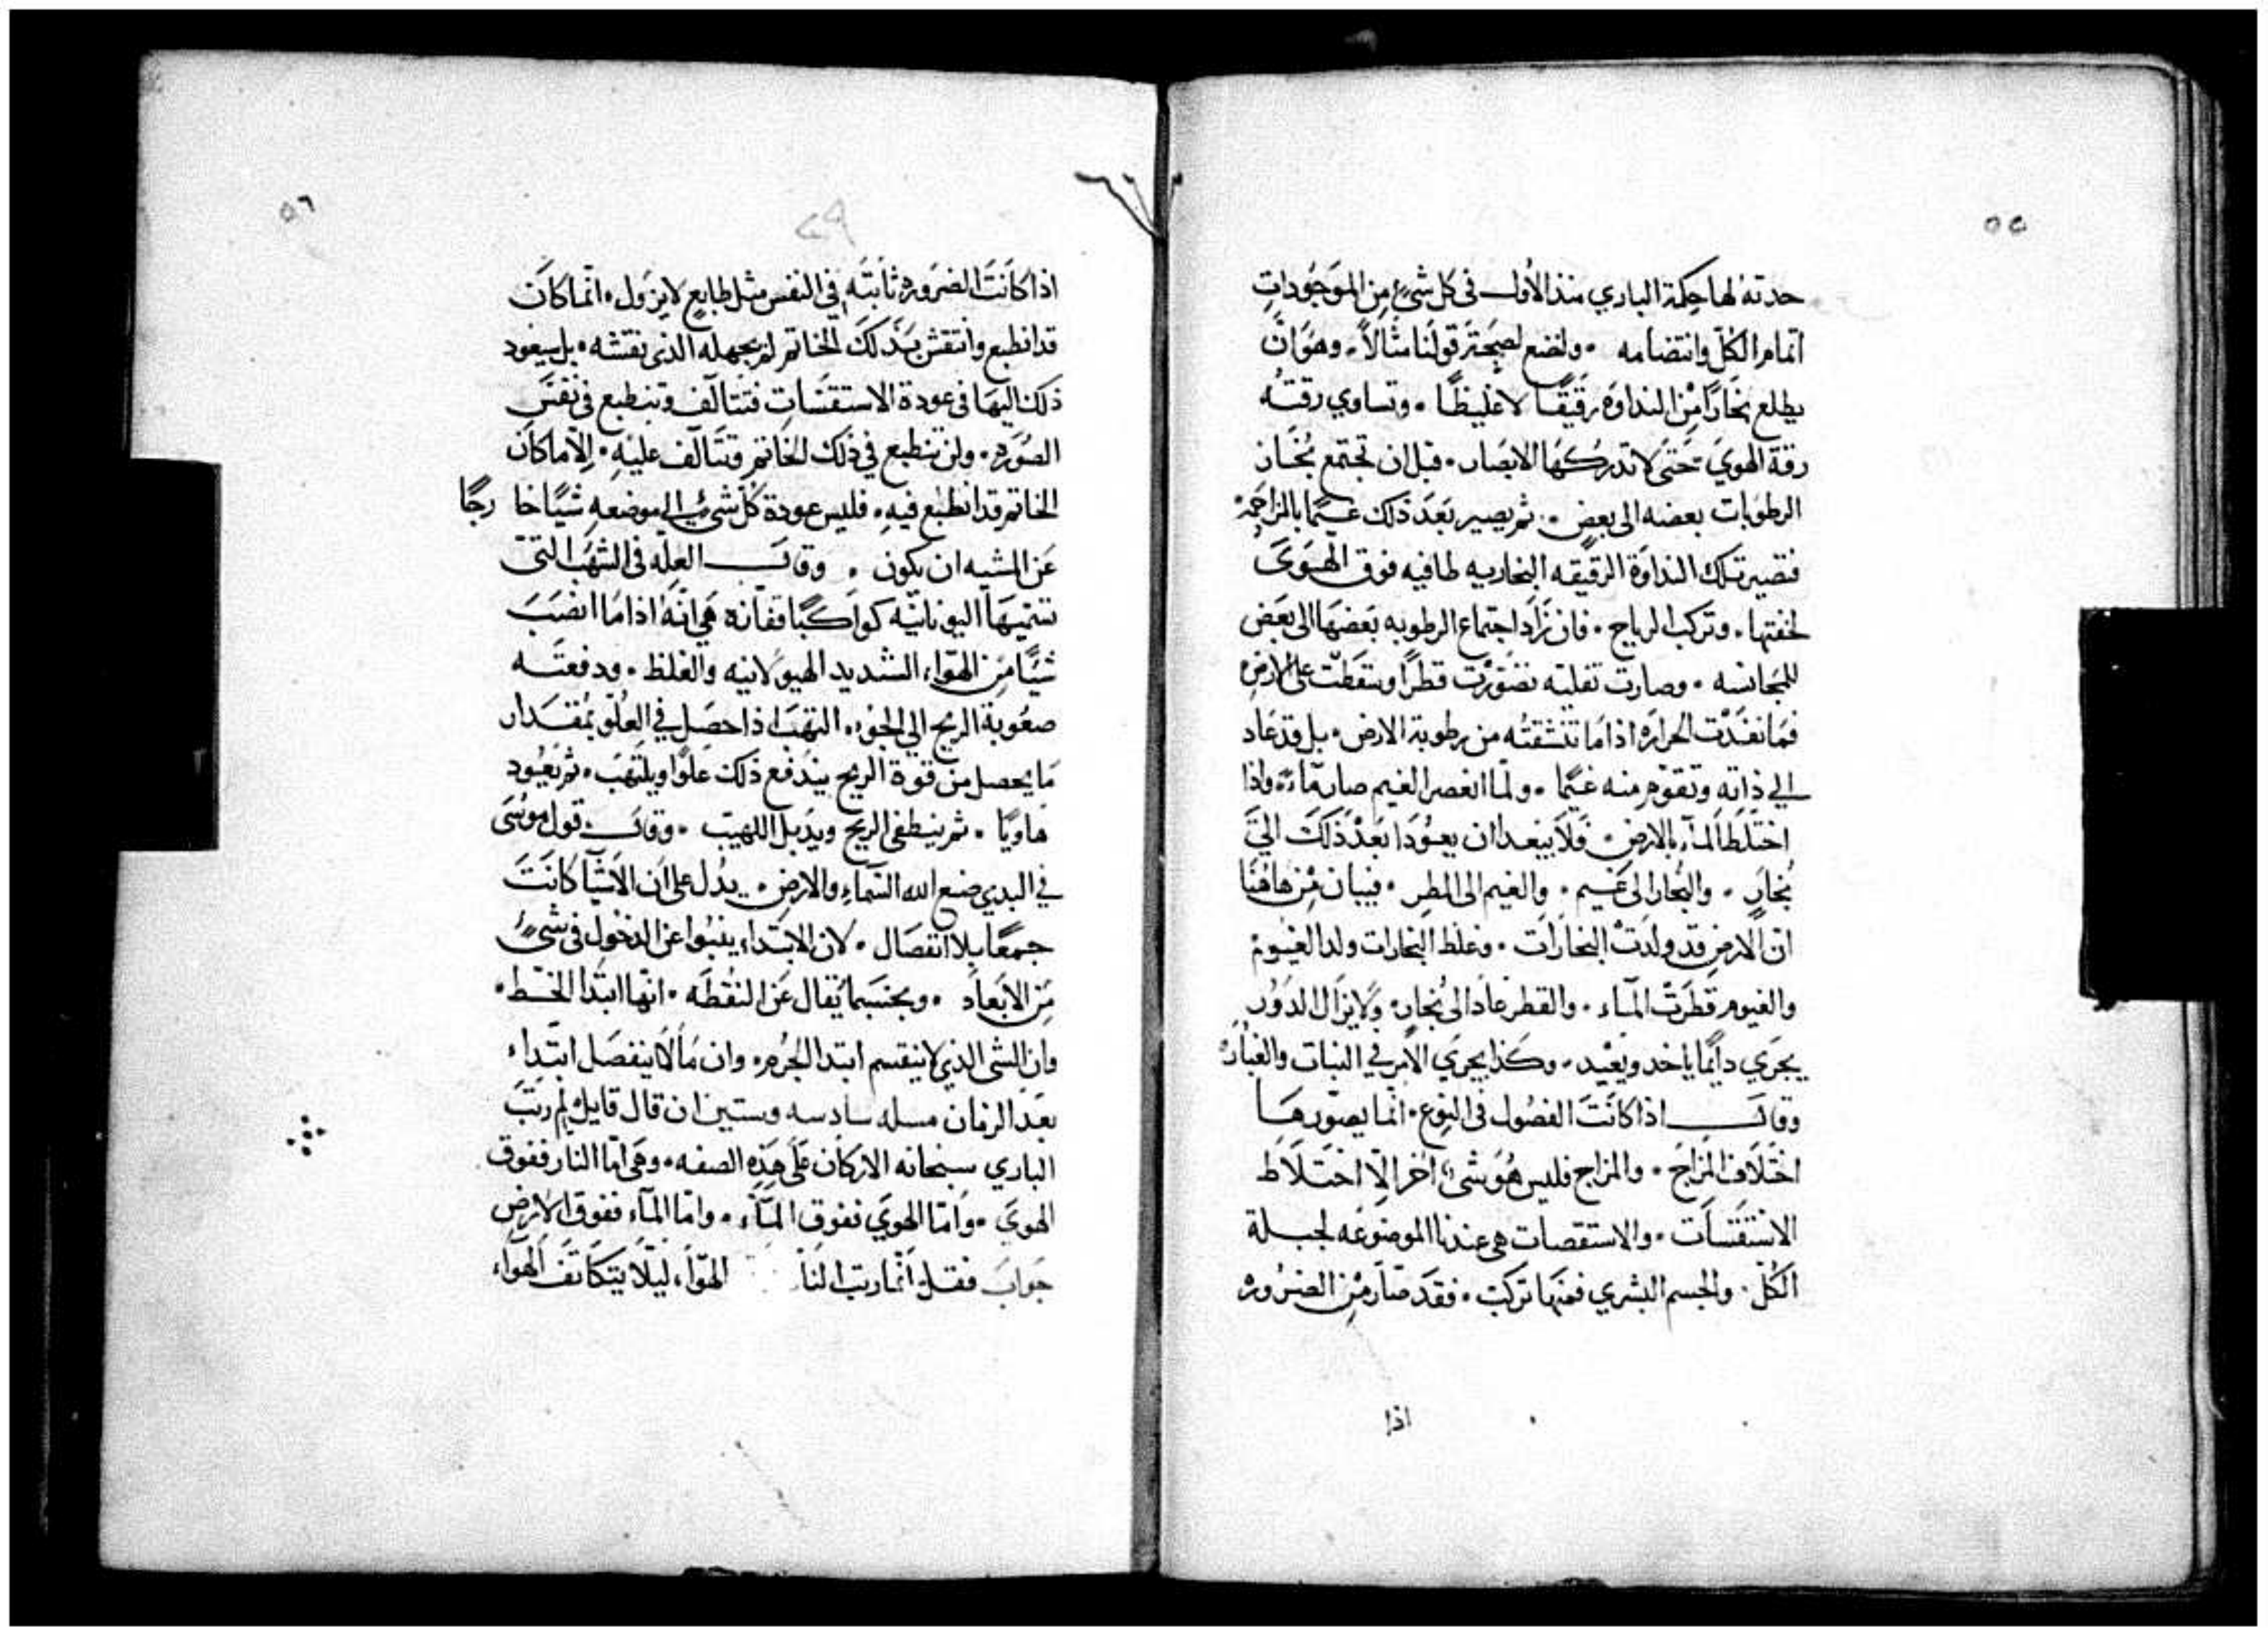 ٥٥
حدته لها حِكمة الباري منذ الاُول في كل شيءٍ مِن الموَجُودَاتِ
اتمام الكلّ وانتضامه ٠ ولنضع لصِحَتر قولنَا مثالاً ٠ وهوَ انّ
يطلع بخَارًا مِنْ النداوَة رقَيقًا لا غليظًا ٠ وتساوي رقتهُ
رقة الهويَ حَتى لا تدركهَا الابصَار ٠ قبل ان تجتمع بُخَار
الرطوبات بعضه الى بعضٍ ٠ ثم يصير بَعَد ذلك غيمًا بالمزاحمَة
فتصير تلك النداوَة الرقيقه البخاريه طافيه فوق الهَوَىَ
لخفتها ٠ وتركب الرياح ٠ فان زَاد اجتماع الرطوبه بَعضهَا الى بعَض
للمجانسه ٠ وصارت ثقليَه تصَوّرت قطرًا وسَقَطت على الارضِ
فمَا نفَدَت الحرارَه اذا مَا تنشقتُه من رطوبة الارض ٠ بل قد عَاد
الي ذاته وتقوّم منه غيمًا ٠ ولمّا انعصر الغيم صار مآءً ٠ واذا
اختَلطَ المآء بالارضِ ٠ فَلاَ يبعد ان يعوُدَا بَعْدَ ذَلكَ اليَ
بُخارٍ ٠ والبُخار الى غَيم ٠ والغيم الى المطرِ ٠ فبان مِنْ هاهُنَا
انّ الارض قد ولدَتْ البخارَات ٠ وغلظ البخارات ولد الغيومْ
والغيوم قطرَتْ المآء ٠ والقطر عاد الى بُخارٍ ٠ وَلا يزَال الدَوُر
يجرَي دايمًا ياخد ويعُيد ٠ وكذا يجرَي الاَمر في النبات والغبَار
وقالَ اذا كانَتَ الفصُول في النوع ٠ انّما يصوّرهَا
اختَلاف المزَاجَ ٠ والمزاج فليس هُوَ شيءً اَخر الاّ اختَلاَط
الاسْتقسَات ٠ والاستقصات هي عندنا الموضوعَه لجبلة
الكُلّ ٠ والجسم البشري فمنهَا تركبَ ٠ فقَد صَار مِن الضرُورة
اذا
٥٦
اذا كانَتَ الضرَوره ثابتَه في النفس مثل طابعٍ لا يزول ٠ انّما كانَ
قد انطبع وانتقش بَذَلكَ الخاتم لم يجهله الذى نقشه ٠ بل سيعود
ذلك اليهَا في عودة الاستقسَات فتتآلف وتنطبع في نفسَ
الصُوَره ٠ ولن تنطبع في ذلك الخاتم وتتَآلف عليهِ ٠ الاّ ما كان
الخاتم قد انطبع فيهِ ٠ فليس عودة كُل شيءٍ الى موضعهِ شيًا خارجًا
عَن المشيه ان يكون ٠ وقالَ العِلّه في الشهَب التي
تسَمّيهَا اليونانيّه كواكبًا قفازه هي انّهُ اذا مَا انضبَ
شيًا مَن الهوَاء الشديد الهيولانيه والغلظ ٠ ودفعتَه
صعُوبة الريح الى الجوّ ٠ التهبَ اذا حصَل في العُلوّ بمُقدَار
مَا يحصل من قوة الريح يندَفع ذلك علوًّا ويلتَهبَ ٠ ثم يعُود
هاويًا ٠ ثم ينطفى الريح ويذبل اللهيبَ ٠ وقالَ قول موسَى
في البدي صنع الله السَمآءِ والارض ٠ يدُل على اَن الاَشيآ كانَتَ
جمعًا بلا انفصَال ٠ لان الابتداء ينبُوا عن الدخُول في شيءٍ
مَن الاَبعاَد ٠ وبحسَبما يُقال عَن النقُطَه ٠ انّها ابتدا الخَط ٠
وان الشي الذي لا ينقسم ابتدا الجُرم ٠ وان مَا لاَ ينفصَل ابتَداء
بعَد الزمان مسله سادسه وستين ان قال قايلٌ لِم رتَبَ
الباري سبحانه الاركان عَلى هَذِه الصفه ٠ وهَي امّا النار ففوق
الهويَ ٠ وامّا الهويَ ففوق المآء ٠ وامّا المآء ففوق الارضِ
جوابَ فقل انمّا رتب لنا الهوَاء ليلاَ يتكاثفَ الهَواء